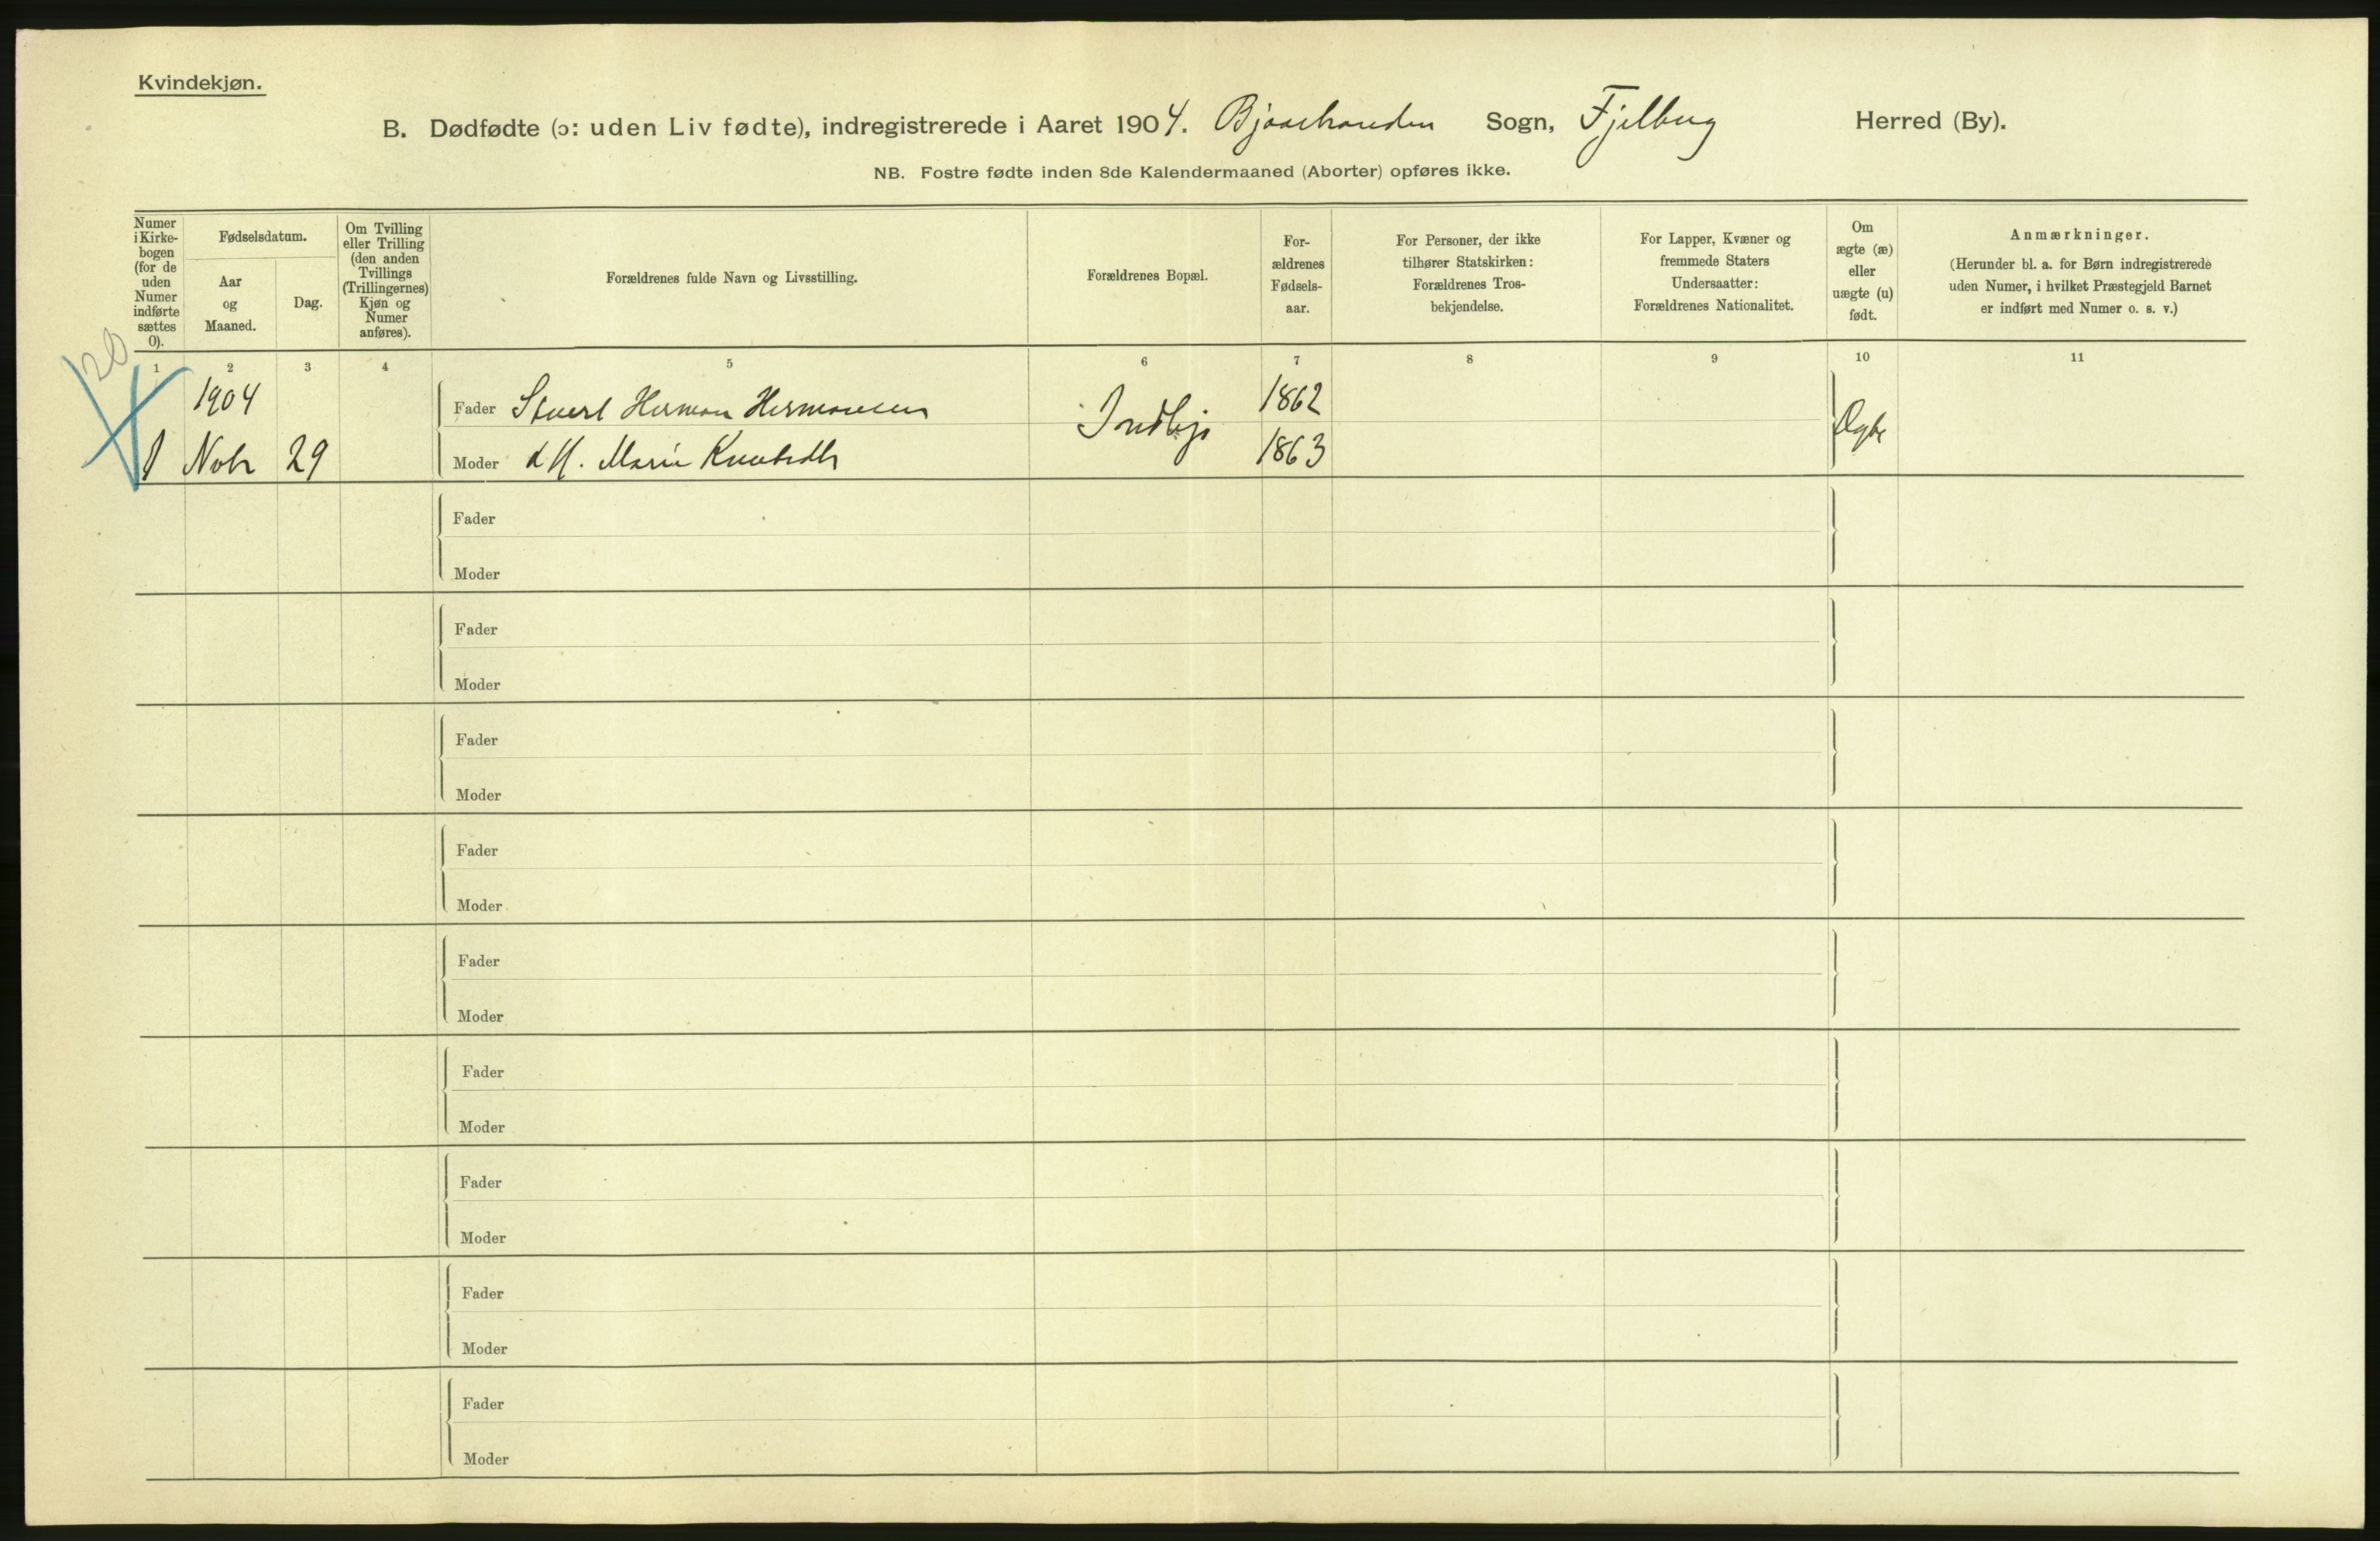 Kvindekjøn.
B. Dødfødte (ɔ: uden Liv fødte), indregistrerede i Aaret 1904. Sogn, Fjelberg Herred (By).
NB. Fostre fødte inden 8de Kalendermaaned (Aborter) opføres ikke.
Numer
i Kirke-
bogen
(for de
uden
Numer
indførte
sættes
0).
Fødselsdatum.
Aar
og
Maaned.
Dag.
Om Tvilling
eller Trilling
(den anden
Tvillings
(Trillingernes)
Kjøn og
Numer
anføres).
Forældrenes fulde Navn og Livsstilling.
Forældrenes Bopæl.
For-
ældrenes
Fødsels-
aar.
For Personer, der ikke
tilhører Statskirken:
Forældrenes Tros-
bekjendelse.
For Lapper, Kvæner og
fremmede Staters
Undersaatter:
Forældrenes Nationalitet.
Om
ægte (æ)
eller
uægte (u)
født.
Anmærkninger.
(Herunder bl. a. for Børn indregistrerede
uden Numer, i hvilket Præstegjeld Barnet
er indført med Numer o. s. v.)
1 2 3 4 5 6 7 8 9 10 11
20
1904
1 Nobr 29
Fader Herman Hermansen 1862
Moder Marie 1863
Ægte
Fader
Moder
Fader
Moder
Fader
Moder
Fader
Moder
Fader
Moder
Fader
Moder
Fader
Moder
Fader
Moder
Fader
Moder